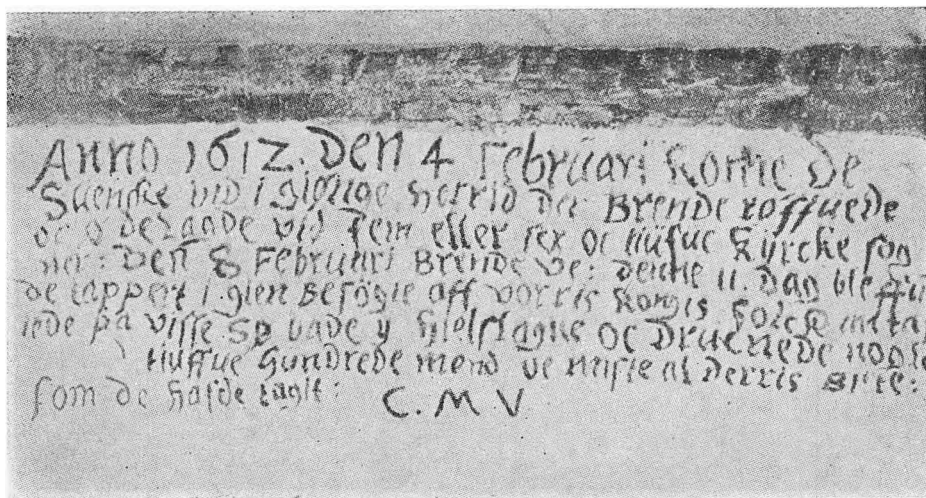 Anno 1612. Den 4 Februari Komme de
Suenske ind i giønge Herrid der Brende roffuede
oc ø de lagde vid Fem eller sex oc tiufue Kyrcke sog
ner: Den 8 Februari Brende De: Denne 11. Dag bleffue
de tappert i gien Besøgte aff vorris Kongis Folck
på visse Sø vade y Hielshagne oc Drucnede nogle
tiuffue Hundrede mend De miste al Derris Byte:
som de Hafde tagit: C. M V